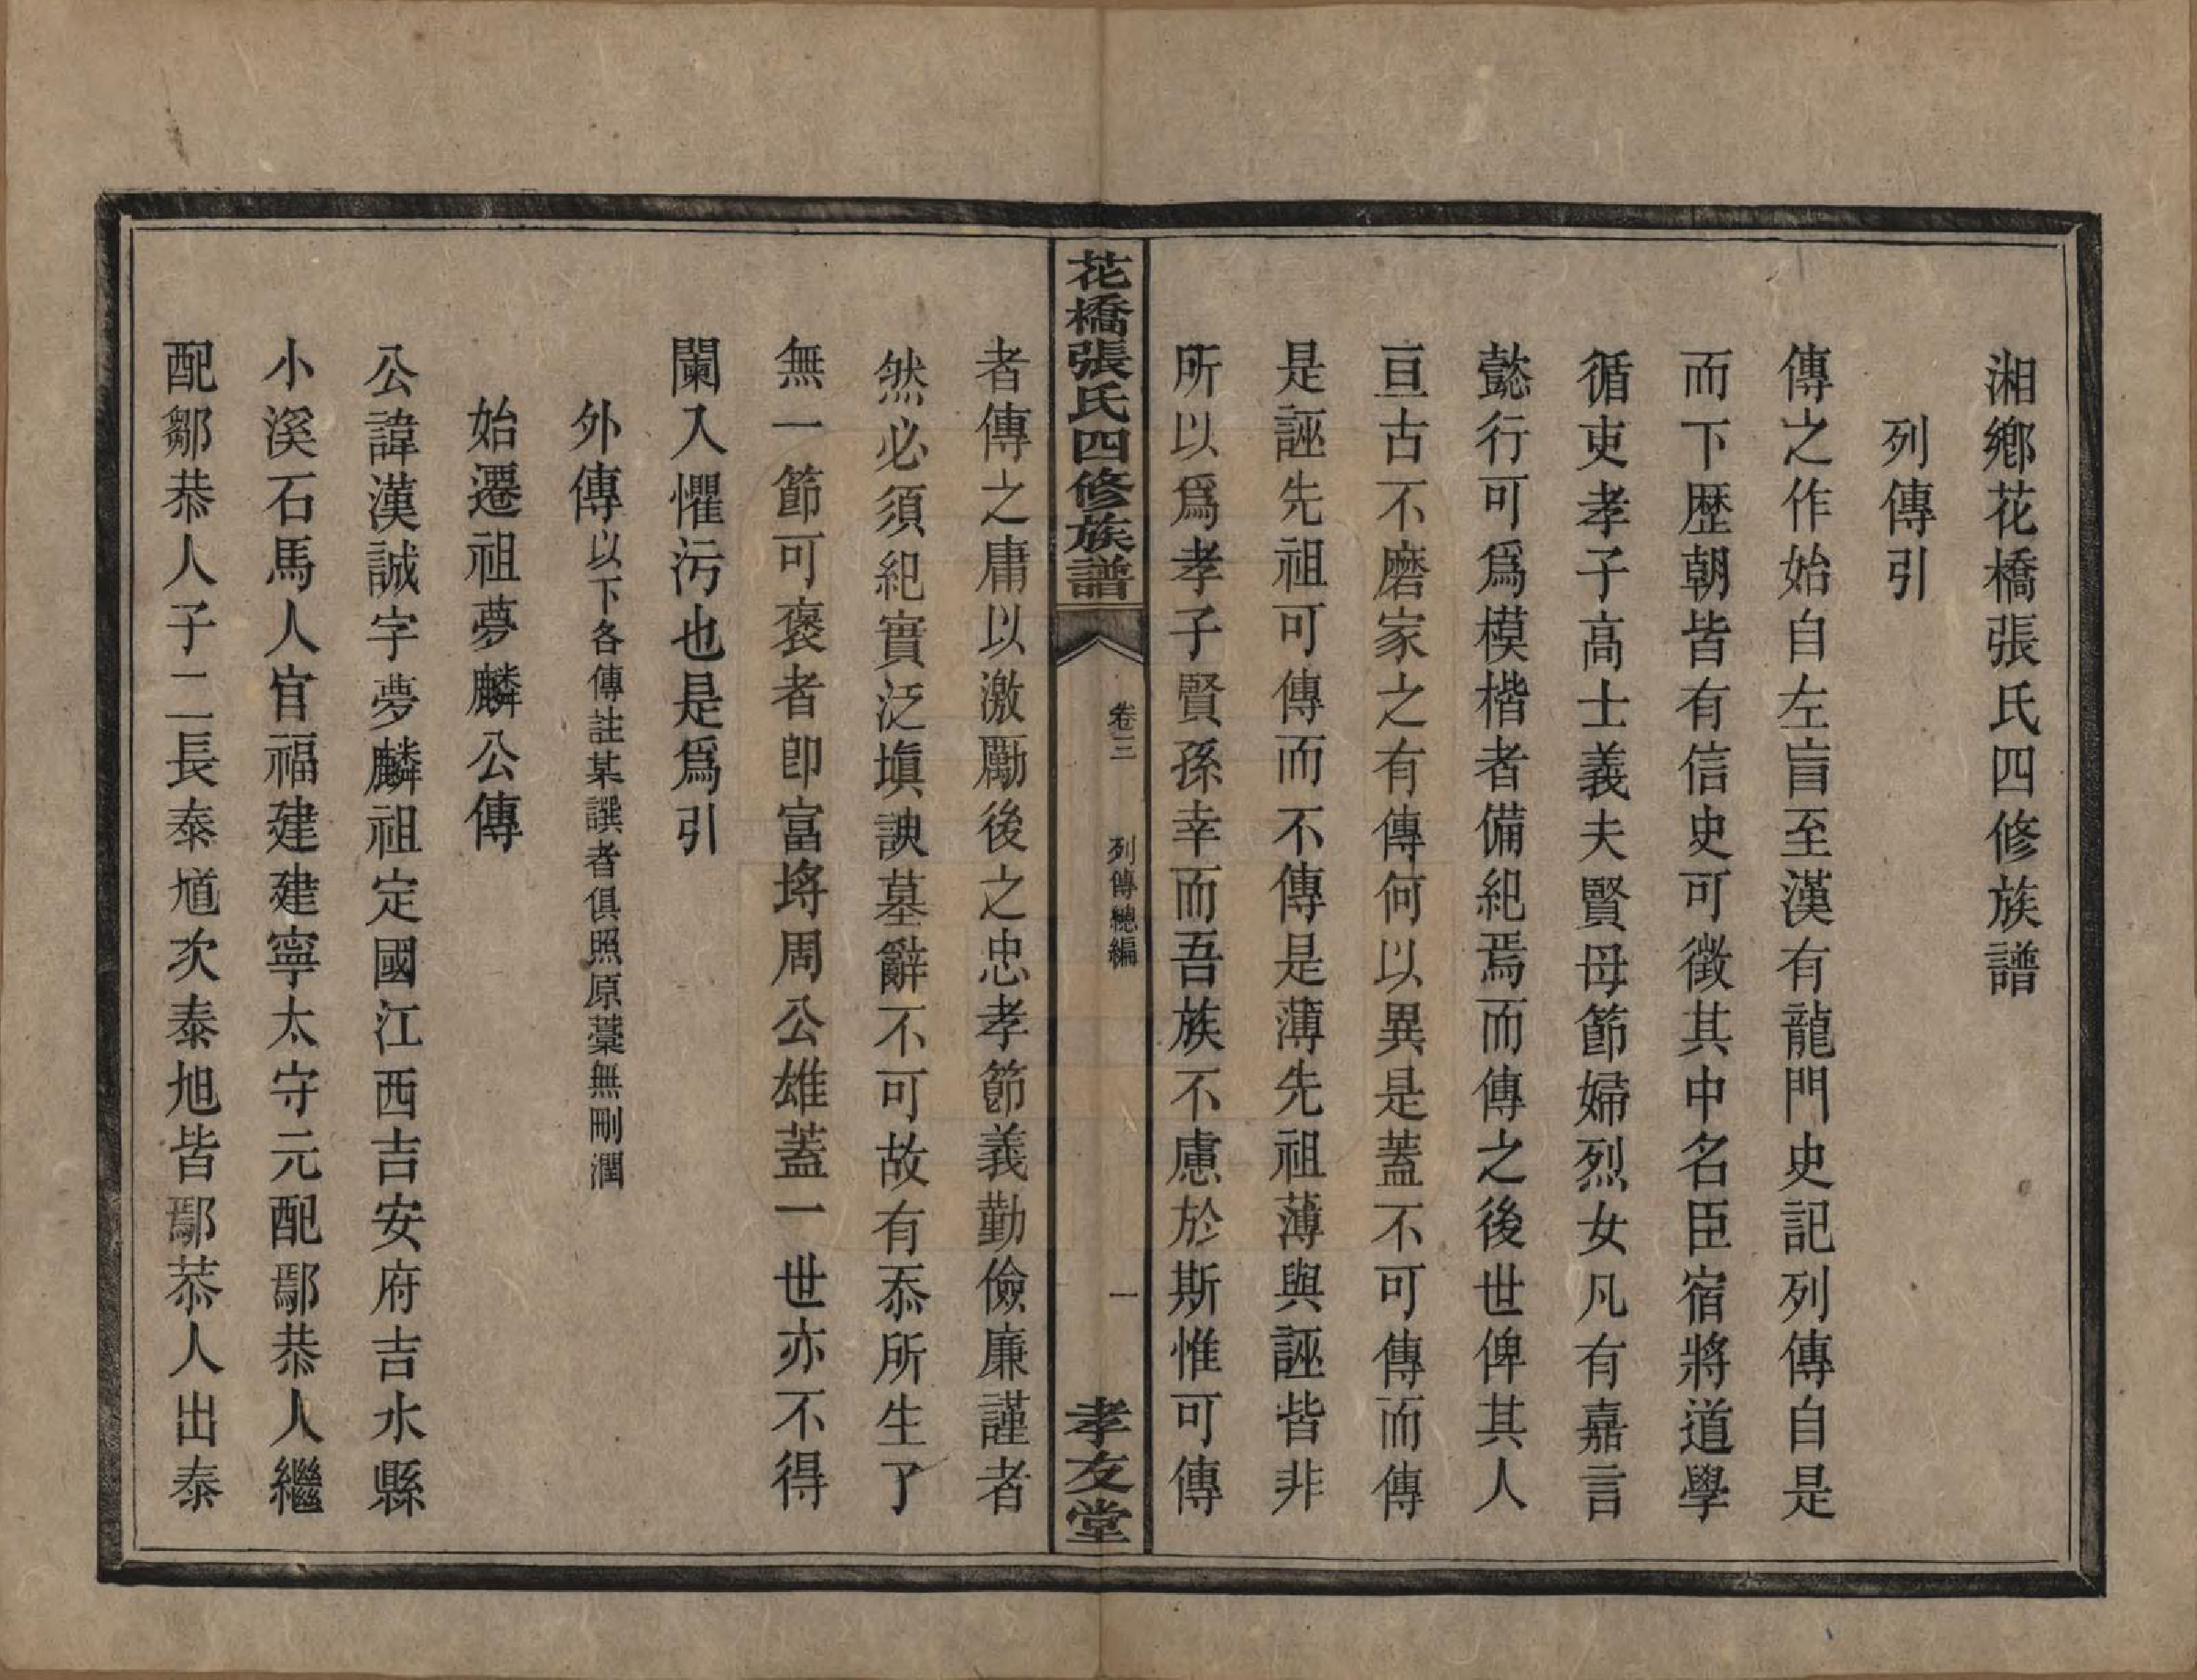 湘鄉花橋張氏四修族譜
列傳引
傳之作始自左盲至漢有龍門史記列傳自是
而下歷朝皆有信史可徵其中名臣宿將道學
循吏孝子高士義夫賢母節婦烈女凡有嘉言
懿行可爲模楷者備紀焉而傳之後世俾其人
亘古不磨家之有傳何以異是蓋不可傳而傳
是誣先祖可傳而不傳是薄先祖薄與誣皆非
所以爲孝子賢孫幸而吾族不慮於斯惟可傳
花橋張氏四修族譜
卷三
列傳總編
一
孝友堂
者傳之庸以激勵後之忠孝節義勤儉廉謹者
然必須紀實泛塡諛墓辭不可故有忝所生了
無一節可褒者卽富埒周公雄蓋一世亦不得
闌入懼污也是爲引
外傳以下各傳註某譔者俱照原藁無刪潤
始遷祖夢麟公傳
公諱漢誠字夢麟祖定國江西吉安府吉水縣
小溪石馬人官福建建寧太守元配鄢恭人繼
配鄒恭人子二長泰馗次泰旭皆鄢恭人出泰